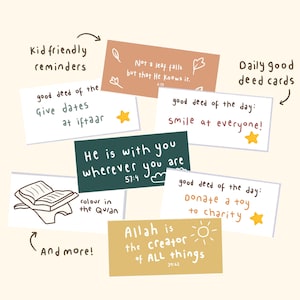 Kid friendly
reminders
Not a leaf falls
but that He knows it.
Daily good
deed cards
good deed of the
Give dates
at iftaar
good deed of the day:
smile at everyone!
He is with you
wherever you are
57:4
good deed of the day:
Donate a toy
to charity
colour in
the Quran
And more!
Allah is
the creator
of ALL things